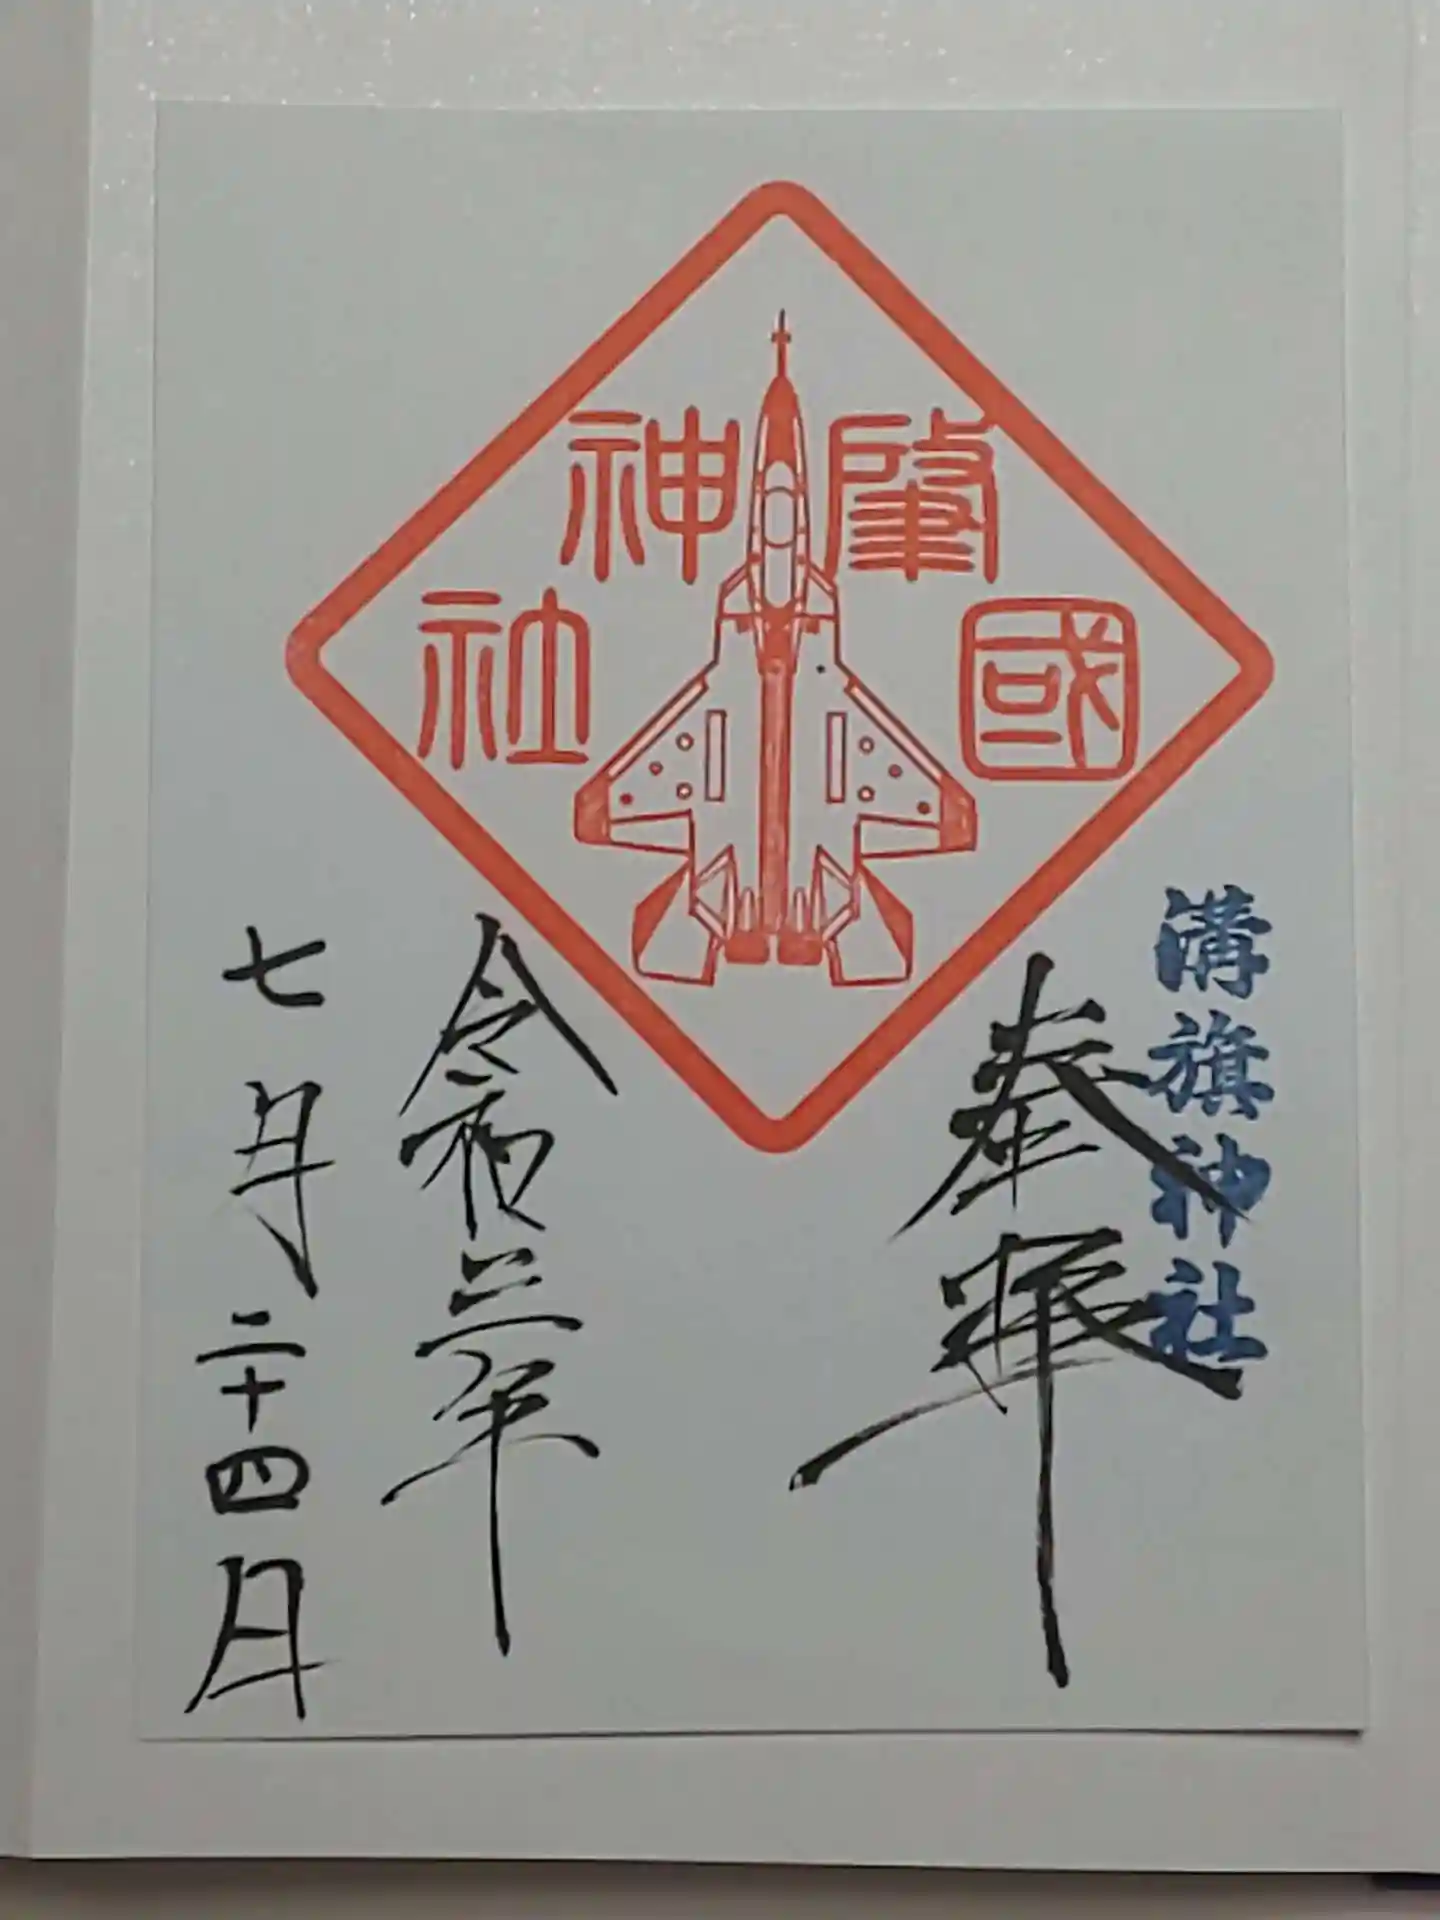 溝旗神社
奉拝
肇國神社
令和三年
七月二十四日